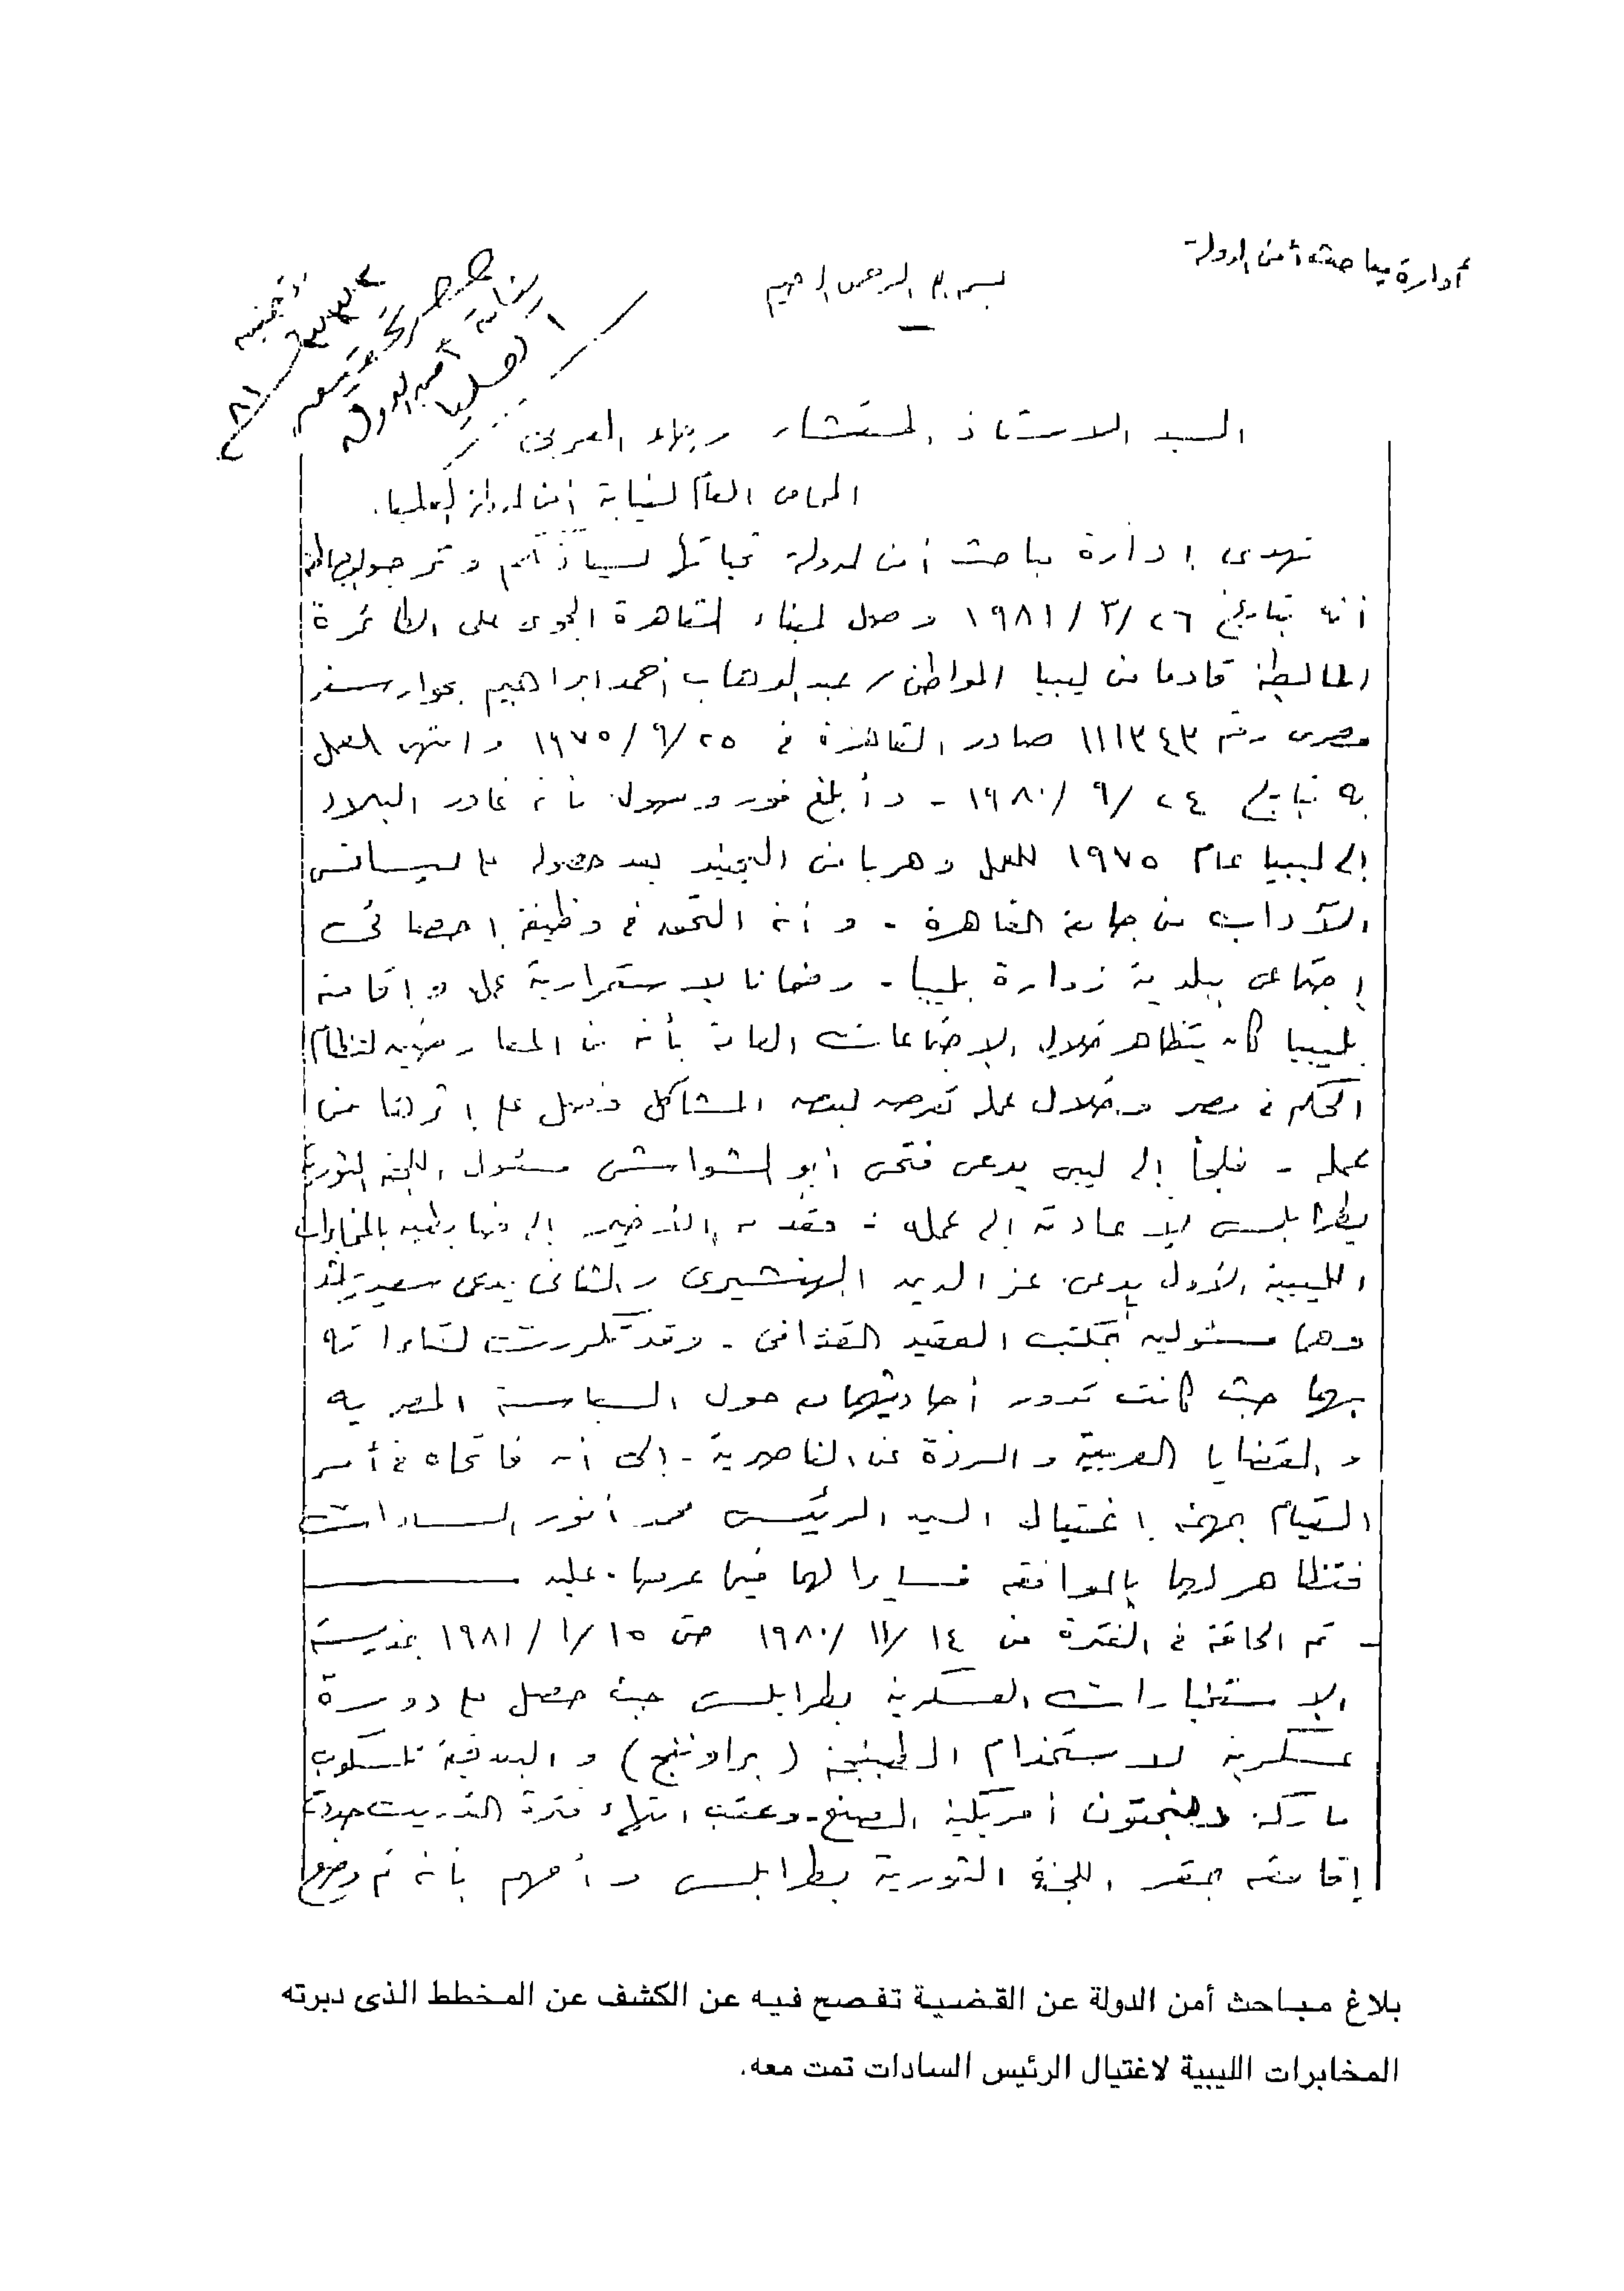 أدارة مباحث أمن الدولة
بسم الله الرحمن الرحيم
نيابة أمن الدولة
العليا
السيد الاستاذ المستشار رجاء العربى
المحامى العام لنيابة أمن الدولة العليا.
تهدى إدارة مباحث أمن الدولة تحياتها لسيادتكم وترجو
أنه بتاريخ ٢٦/٣/١٩٨١ وصل لميناء القاهرة الجوى على الطائرة
المالطية قادما من ليبيا المواطن / عبد الوهاب أحمد ابراهيم بجواز سفر
مصرى رقم ١١١٣٤٣ صادر القاهرة فى ٢٥/٩/١٩٧٥ وانتهى العمل
به بتاريخ ٢٤/٩/١٩٨٠ - وأبلغ فور وصوله بأنه غادر البلاد
إلى ليبيا عام ١٩٧٥ للعمل وهربا من التجنيد بعد حصوله على ليسانس
الآداب من جامعة القاهرة - وأنه التحق فى وظيفة إحصائى
إجتماعى ببلدية زوارة بليبيا - وضمانا لاستمرارية عمله وإقامته
بليبيا كان يتظاهر خلال الاجتماعات العامة بأنه من المعارضين لنظام
الحكم فى مصر وخلال عمله تعرض لبعض المشاكل وفصل على إثرها من
عمله - فلجأ إلى ليبى يدعى فتحى أبو الشواشى مسئول اللجنة الثورية
بطرابلس لإعادته إلى عمله - فقدمه الأخير إلى ضابطين بالمخابرات
الليبية الأول يدعى عز الدين الهنشيرى والثانى يدعى سعيد راشد
وهما مسئولين بمكتب العقيد القذافى - وقد تكررت لقاءاته
بهما حيث كانت تدور أحاديثهما حول السياسة المصرية
والقضايا العربية والردة عن الناصرية - إلى أن فاتحاه فى أمر
القيام بمهمة إغتيال السيد الرئيس محمد أنور السادات
فتظاهر لهما بالموافقة مسايرا لهما فيما عرضاه عليه
- تم الحاقه فى الفترة من ١٤/١١/١٩٨٠ حتى ١٥/١/١٩٨١ بمدرسة
الاستخبارات العسكرية بطرابلس حيث حصل على دورة
عسكرية لاستخدام الطبنجة (براوننج) والبندقية تلسكوب
ماركة ونجتون أمريكية الصنع - وعقب انتهاء فترة التدريب
إقامته بمقر اللجنة الثورية بطرابلس وأفهم بأنه تم وضع
بلاغ مباحث أمن الدولة عن القضية تفصح فيه عن الكشف عن المخطط الذى دبرته
المخابرات الليبية لاغتيال الرئيس السادات تمت معه.